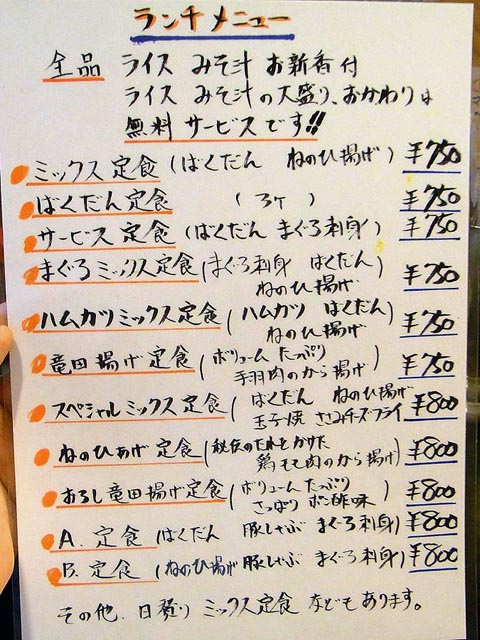 ランチメニュー
全品 ライス みそ汁 お新香付
ライス みそ汁の大盛り、おかわりは
無料サービスです!!
ミックス定食(ばくだん ねのひ揚げ) ¥750
ばくだん定食 (3ヶ) ¥750
サービス定食(ばくだん まぐろ刺身) ¥750
まぐろミックス定食(まぐろ刺身 ばくだん ¥750
ねのひ揚げ)
ハムカツミックス定食(ハムカツ ばくだん ¥750
ねのひ揚げ)
竜田揚げ定食(ボリュームたっぷり ¥750
手羽肉のから揚げ)
スペシャルミックス定食(ばくだん ねのひ揚げ ¥800
玉子焼 ささみチーズフライ)
ねのひあげ定食(秘伝のたれをかけた ¥800
鶏もも肉のから揚げ)
おろし竜田揚げ定食(ボリュームたっぷり ¥800
さっぱり ポン酢味)
A.定食(ばくだん 豚しゃぶ まぐろ刺身) ¥800
B.定食(ねのひ揚げ 豚しゃぶ まぐろ刺身) ¥800
その他、日替り ミックス定食 などもあります。